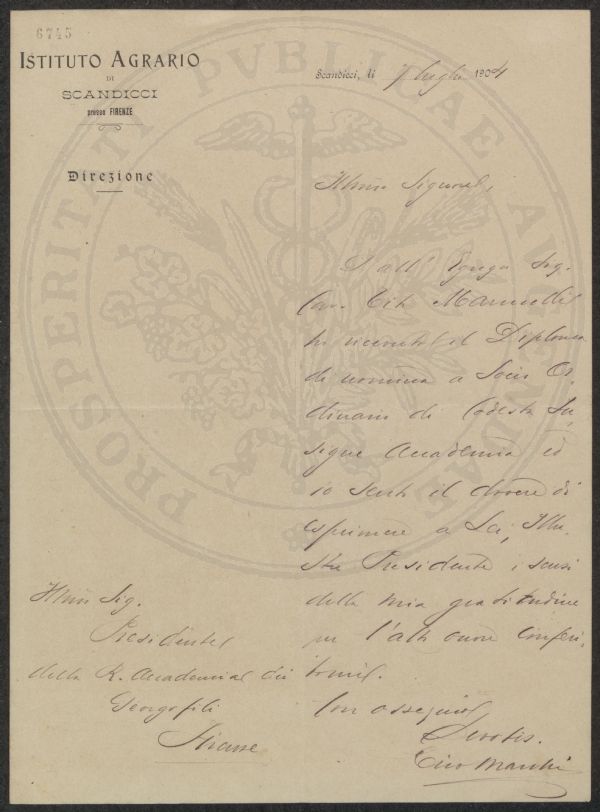 6745
ISTITUTO AGRARIO
DI
SCANDICCI
presso FIRENZE
Direzione
Scandicci, li 7 luglio 1904
Illmo Signore,
Dall' Egregio Sig.
Cav. Tito Mannelli
ho ricevuto il Diploma
di nomina a Socio Or,
dinario di Codesta In,
signe Accademia ed
io sento il dovere di
esprimere a Lei, Illu,
stre Presidente i sensi
della mia gratitudine
per l'alto onore conferi,
tomi.
Con ossequio
Devotis.
Ezio Marchi
Illmo Sig.
Presidente
della R. Accademia dei
Georgofili
Firenze
PROSPERITATI PVBLICAE AVGENDAE